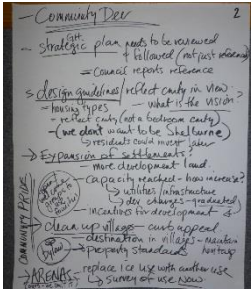 - Community Dev 2
- strategic plan needs to be reviewed
& followed (not just reference)
= Council reports reference
design guidelines / reflect cmty in view.
- housing types - what is the vision?
- reflect cmty (not a bedroom cmty)
(we don't want to be Shelburne)
↳ residents could invest later
→ Expansion of settlements?
- more development land.
- capacity reached - how increase?
↳ utilities/infrastructure
↳ dev charges - graduated
- incentives for development
→ clean up villages - curb appeal
- destination in villages - maintain heritage
→ property standards
COMMUNITY PRIDE
→ ARENAS - replace ice use with another use
↳ survey of use now.